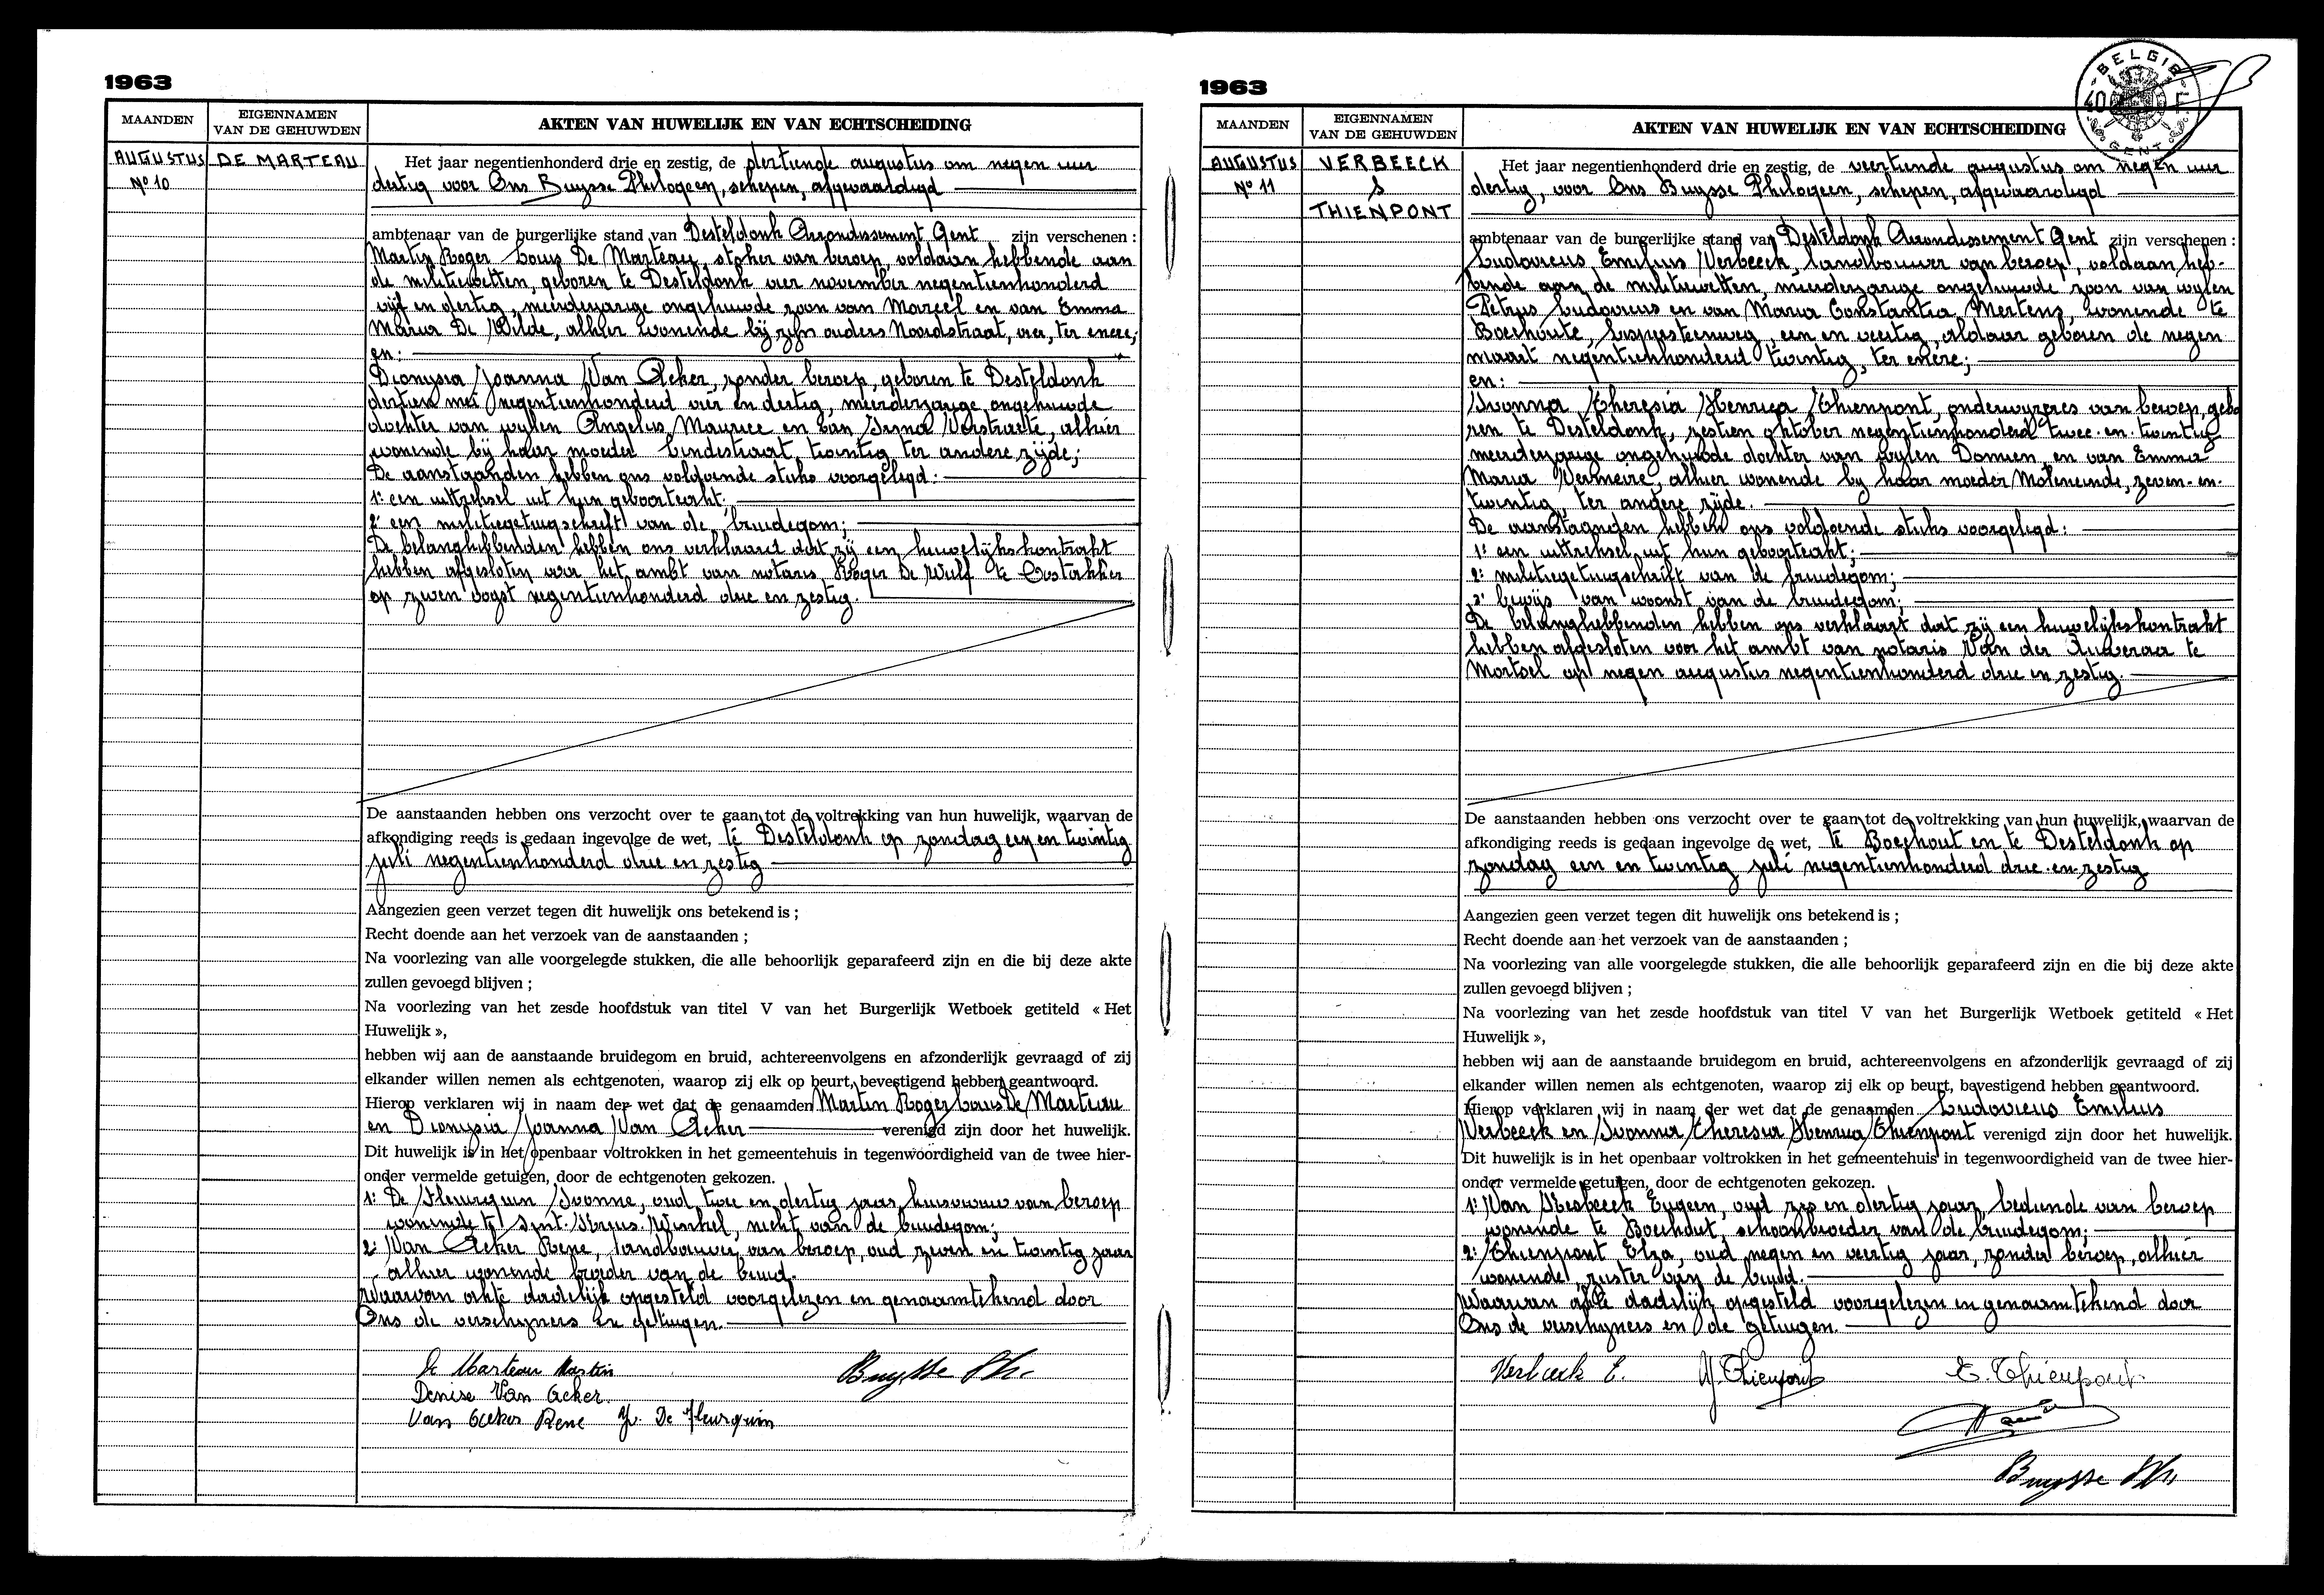 1963
MAANDEN
EIGENNAMEN
VAN DE GEHUWDEN
AKTEN VAN HUWELIJK EN VAN ECHTSCHEIDING
AUGUSTUS
Nº 10
DE MARTEAU
Het jaar negentienhonderd drie en zestig, de dertiende augustus om negen uur
dertig voor Ons Buysse Philogeen, schepen, afgevaardigd
ambtenaar van de burgerlijke stand van Desteldonk Arrondissement Gent zijn verschenen :
Martin Roger Louis De Marteau, stoker van beroep, voldaan hebbende aan
de militiewetten, geboren te Desteldonk vier november negentienhonderd
vijf en dertig, meerderjarige ongehuwde zoon van Marcel en van Emma
Maria De Wilde, alhier wonende bij zijn ouders Noordstraat, vier, ter enere;
en:
Dionysia Joanna Van Acker, zonder beroep, geboren te Desteldonk
dertien mei negentienhonderd vier en dertig, meerderjarige ongehuwde
dochter van wylen Angelus Maurice en van Irma Verstraete, alhier
wonende bij haar moeder Lindestraat, twintig ter andere zijde;
De aanstaanden hebben ons voldoende stuks voorgelegd:
1º een uittreksel uit hun geboorteakt;
2º een militiegetuigschrift van de bruidegom;
De belanghebbenden hebben ons verklaard dat zij een huwelijkskontrakt
hebben afgesloten voor het ambt van notaris Roger De Wulf te Oostakker
op zeven oogst negentienhonderd drie en zestig.
De aanstaanden hebben ons verzocht over te gaan tot de voltrekking van hun huwelijk, waarvan de
afkondiging reeds is gedaan ingevolge de wet, te Desteldonk op zondag een en twintig
juli negentienhonderd drie en zestig
Aangezien geen verzet tegen dit huwelijk ons betekend is ;
Recht doende aan het verzoek van de aanstaanden ;
Na voorlezing van alle voorgelegde stukken, die alle behoorlijk geparafeerd zijn en die bij deze akte
zullen gevoegd blijven ;
Na voorlezing van het zesde hoofdstuk van titel V van het Burgerlijk Wetboek getiteld « Het
Huwelijk »,
hebben wij aan de aanstaande bruidegom en bruid, achtereenvolgens en afzonderlijk gevraagd of zij
elkander willen nemen als echtgenoten, waarop zij elk op beurt, bevestigend hebben geantwoord.
Hierop verklaren wij in naam der wet dat de genaamden Martin Roger Louis De Marteau
en Dionysia Joanna Van Acker verenigd zijn door het huwelijk.
Dit huwelijk is in het openbaar voltrokken in het gemeentehuis in tegenwoordigheid van de twee hier-
onder vermelde getuigen, door de echtgenoten gekozen.
1º De Fleurquin Ivonne, oud twee en dertig jaar, huisvrouw van beroep
wonende te Sint-Kruis-Winkel, nicht van de bruidegom;
2º Van Acker Rene, landbouwer van beroep, oud zeven en twintig jaar
alhier wonende broeder van de bruid.
Waarvan akte dadelijk opgesteld voorgelezen en genaamtekend door
Ons de verschijners en getuigen.
De Marteau Martin
Buysse Ph.
Denise Van Acker.
Van Acker Rene Y. De Fleurquin
1963
BELGIE
40 F
GENT
MAANDEN
EIGENNAMEN
VAN DE GEHUWDEN
AKTEN VAN HUWELIJK EN VAN ECHTSCHEIDING
AUGUSTUS
Nº 11
VERBEECK
&
THIENPONT
Het jaar negentienhonderd drie en zestig, de veertiende augustus om negen uur
dertig, voor Ons Buysse Philogeen, schepen, afgevaardigd
ambtenaar van de burgerlijke stand van Desteldonk Arrondissement Gent zijn verschenen :
Ludovicus Emilius Verbeeck, landbouwer van beroep, voldaan heb-
bende aan de militiewetten, meerderjarige ongehuwde zoon van wylen
Petrus Ludovicus en van Maria Constantia Mertens, wonende te
Boechoute, een en veertig, aldaar geboren de negen
maart negentienhonderd twintig, ter enere;
en:
Ivonna Theresia Henrica Thienpont, onderwyzeres van beroep, gebo
ren te Desteldonk, zestien oktober negentienhonderd twee-en-twintig
meerderjarige ongehuwde dochter van wylen Domien en van Emma
Maria Vermeire, alhier wonende by haar moeder Moleneinde, zeven-en-
twintig, ter andere zijde.
De aanstaanden hebben ons voldoende stuks voorgelegd:
1º een uittreksel uit hun geboorteakt;
2º militiegetuigschrift van de bruidegom;
3º bewijs van woonst van de bruidegom;
De belanghebbenden hebben ons verklaart dat zij een huwelijkskontrakt
hebben afgesloten voor het ambt van notaris Van der Auweraa te
Mortsel op negen augustus negentienhonderd drie en zestig.
De aanstaanden hebben ons verzocht over te gaan tot de voltrekking van hun huwelijk, waarvan de
afkondiging reeds is gedaan ingevolge de wet, te Boechout en te Desteldonk op
zondag een en twintig juli negentienhonderd drie-en-zestig
Aangezien geen verzet tegen dit huwelijk ons betekend is ;
Recht doende aan het verzoek van de aanstaanden ;
Na voorlezing van alle voorgelegde stukken, die alle behoorlijk geparafeerd zijn en die bij deze akte
zullen gevoegd blijven ;
Na voorlezing van het zesde hoofdstuk van titel V van het Burgerlijk Wetboek getiteld « Het
Huwelijk »,
hebben wij aan de aanstaande bruidegom en bruid, achtereenvolgens en afzonderlijk gevraagd of zij
elkander willen nemen als echtgenoten, waarop zij elk op beurt, bevestigend hebben geantwoord.
Hierop verklaren wij in naam der wet dat de genaamden Ludovicus Emilius
Verbeeck en Ivonna Theresia Henrica Thienpont verenigd zijn door het huwelijk.
Dit huwelijk is in het openbaar voltrokken in het gemeentehuis in tegenwoordigheid van de twee hier-
onder vermelde getuigen, door de echtgenoten gekozen.
1º Van Eugeen, oud zes en dertig jaar, bediende van beroep
wonende te Boechout, schoonbroeder van de bruidegom;
2º Thienpont Elza, oud negen en veertig jaar, zonder beroep, alhier
wonende, zuster van de bruid.
Waarvan akte dadelijk opgesteld voorgelezen en genaamtekend door
Ons de verschijners en de getuigen.
Verbeeck E. Y. Thienpont E. Thienpont
Buysse Ph.